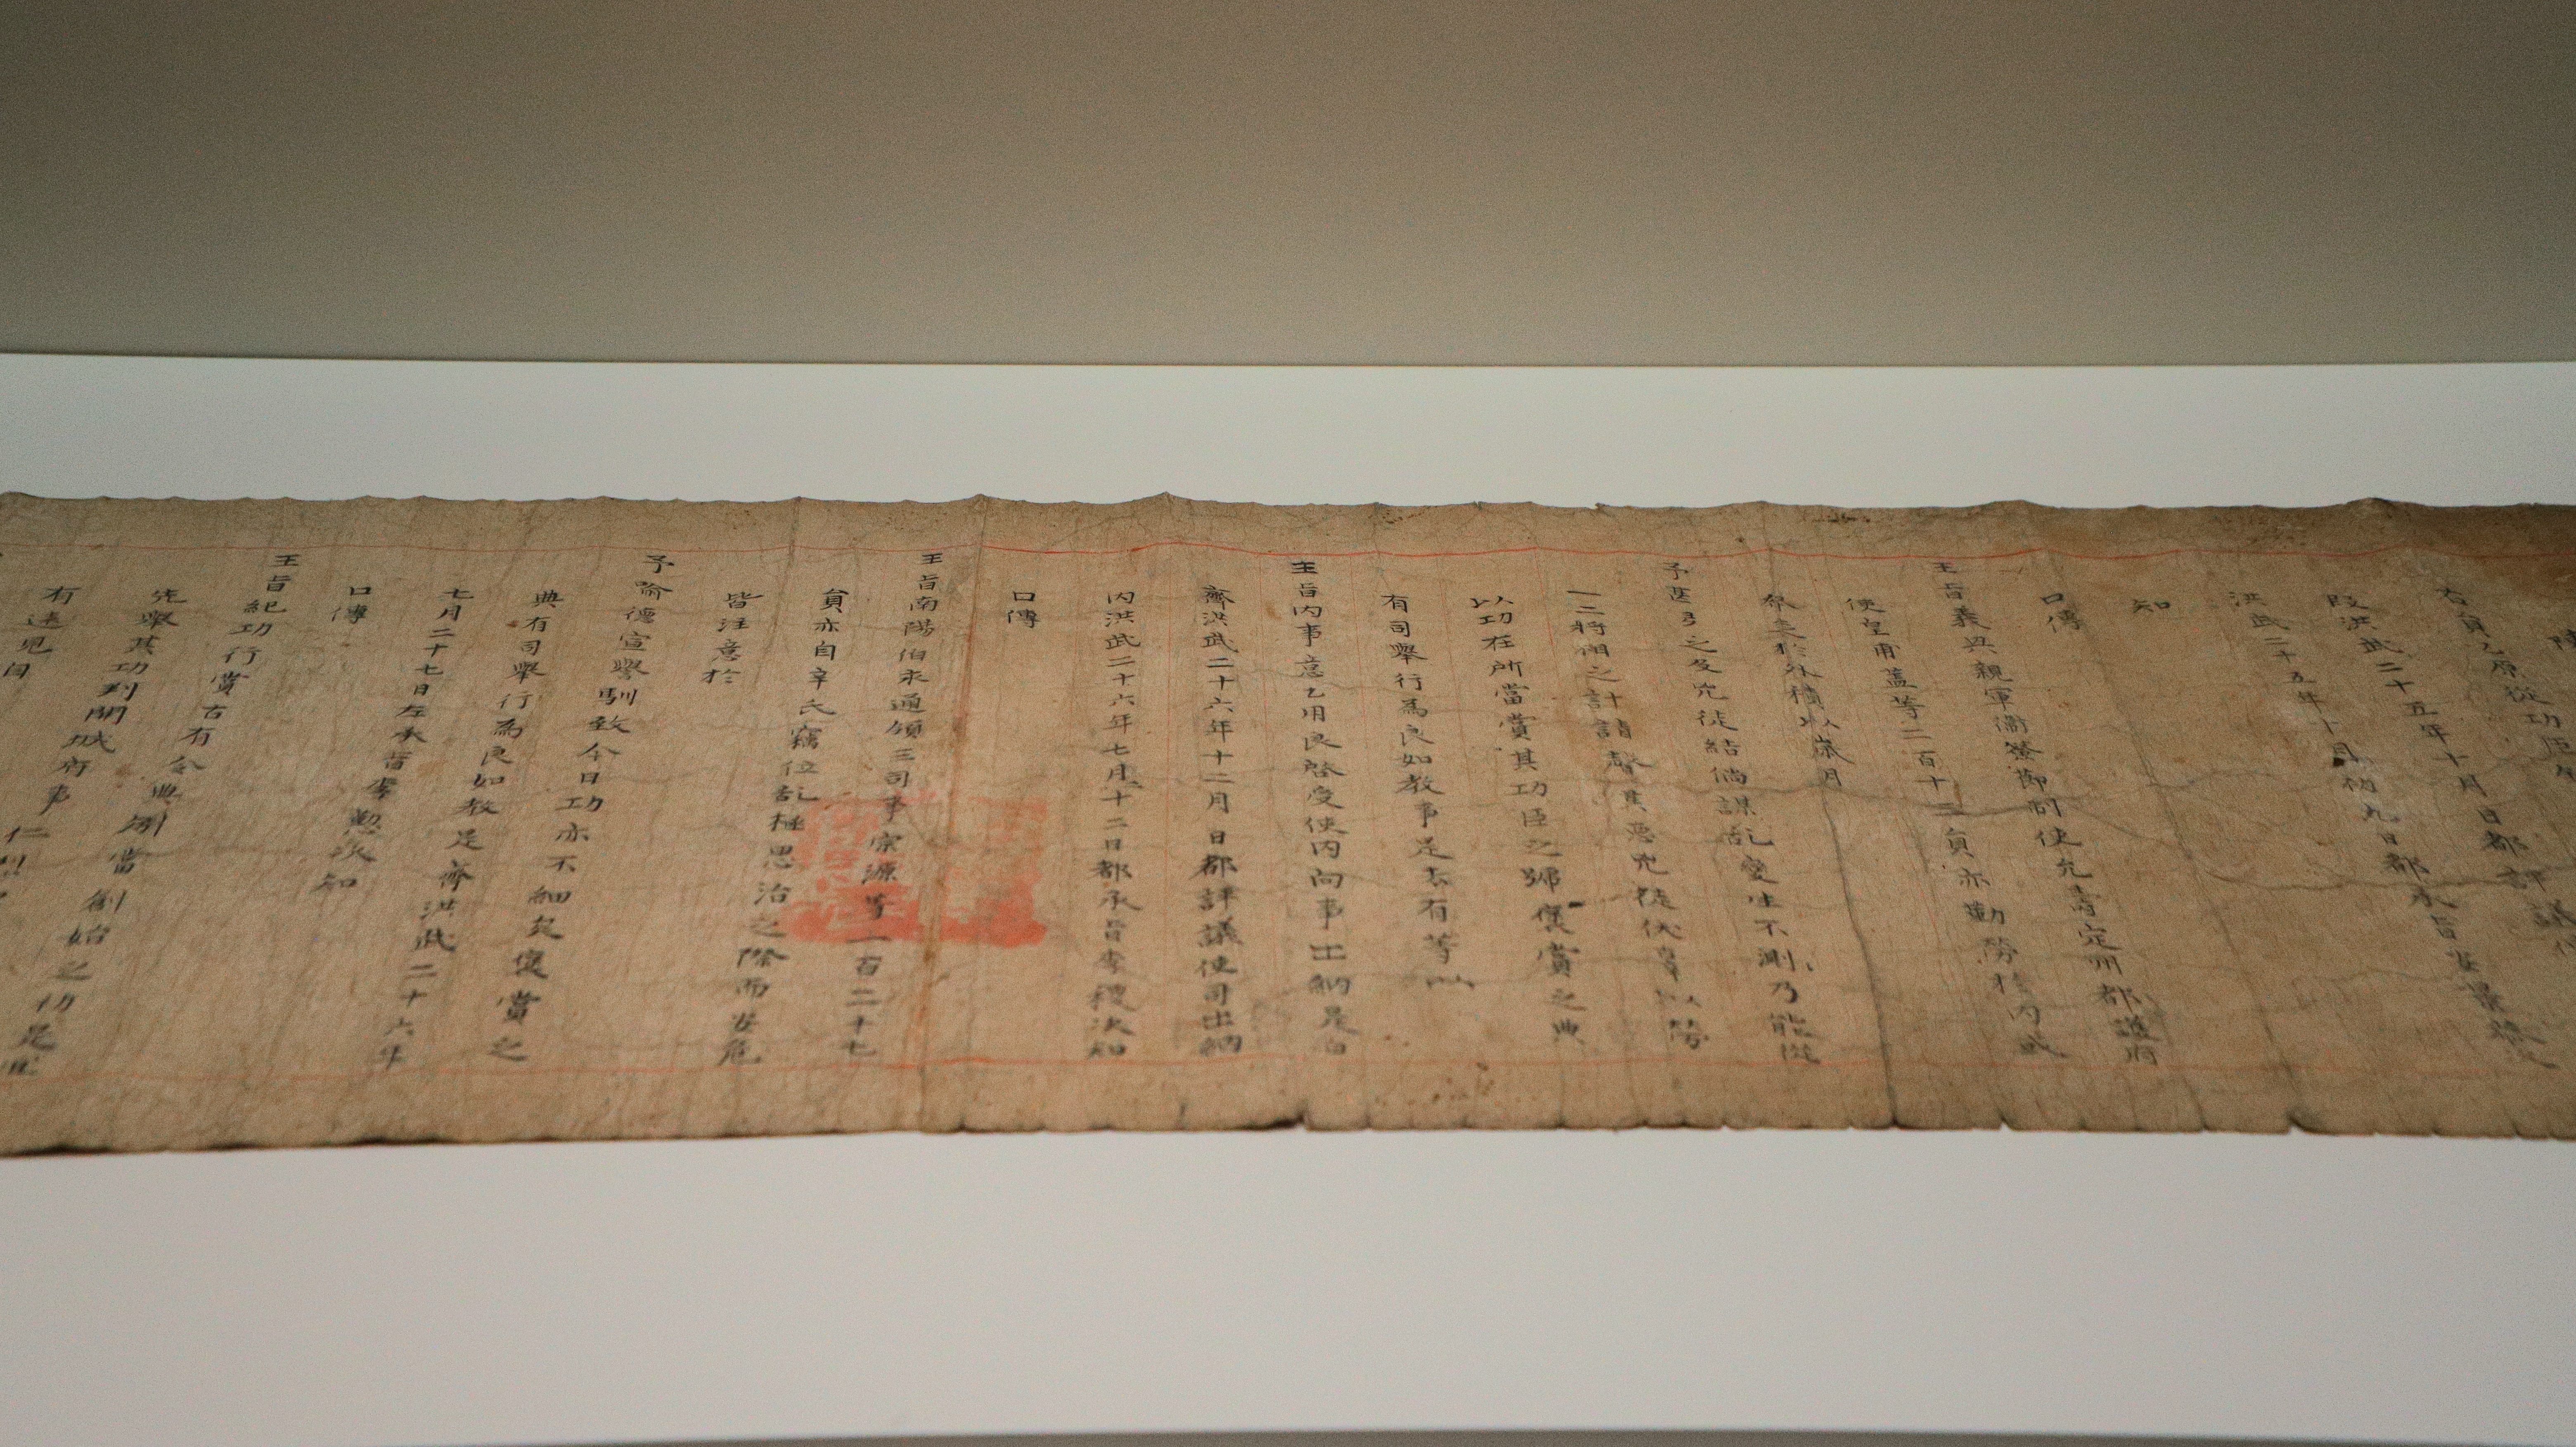 右員乙原從功臣
段洪武二十五年十月日都評議使
洪武二十五年十月初九日都承旨安景
知
口傳
王旨義興親軍衛僉節制使兄壽定州都護府
使皇甫盖等二百十三員亦勤勞於內或
於外積以歲月
予甚
之及兇徒結儻謀乱變生不測乃能從
一二將相之計請聲其惡兇徒伏辜以勞
以功在所當賞其功臣之號褒賞之典
有司舉行爲良如敎事是去有等以
王旨內事意乙用良啓受使內向事出納是白
齊洪武二十六年十二月日都評議使司出納
內洪武二十六年七月十二日都承旨李稷次知
口傳
王旨南陽伯永通領三司事宗源等一百二十七
員亦自辛氏竊位乱極思治之際而安危
皆注意於
予喩德宣譽馴致今日功亦不細矣褒賞之
典有司舉行爲良如敎是齊洪武二十六年
七月二十七日左承旨李懃次知
口傳
王旨紀功行賞古有令典刱當創始之功是宜
先舉其功判開城府事仁
有遠見自